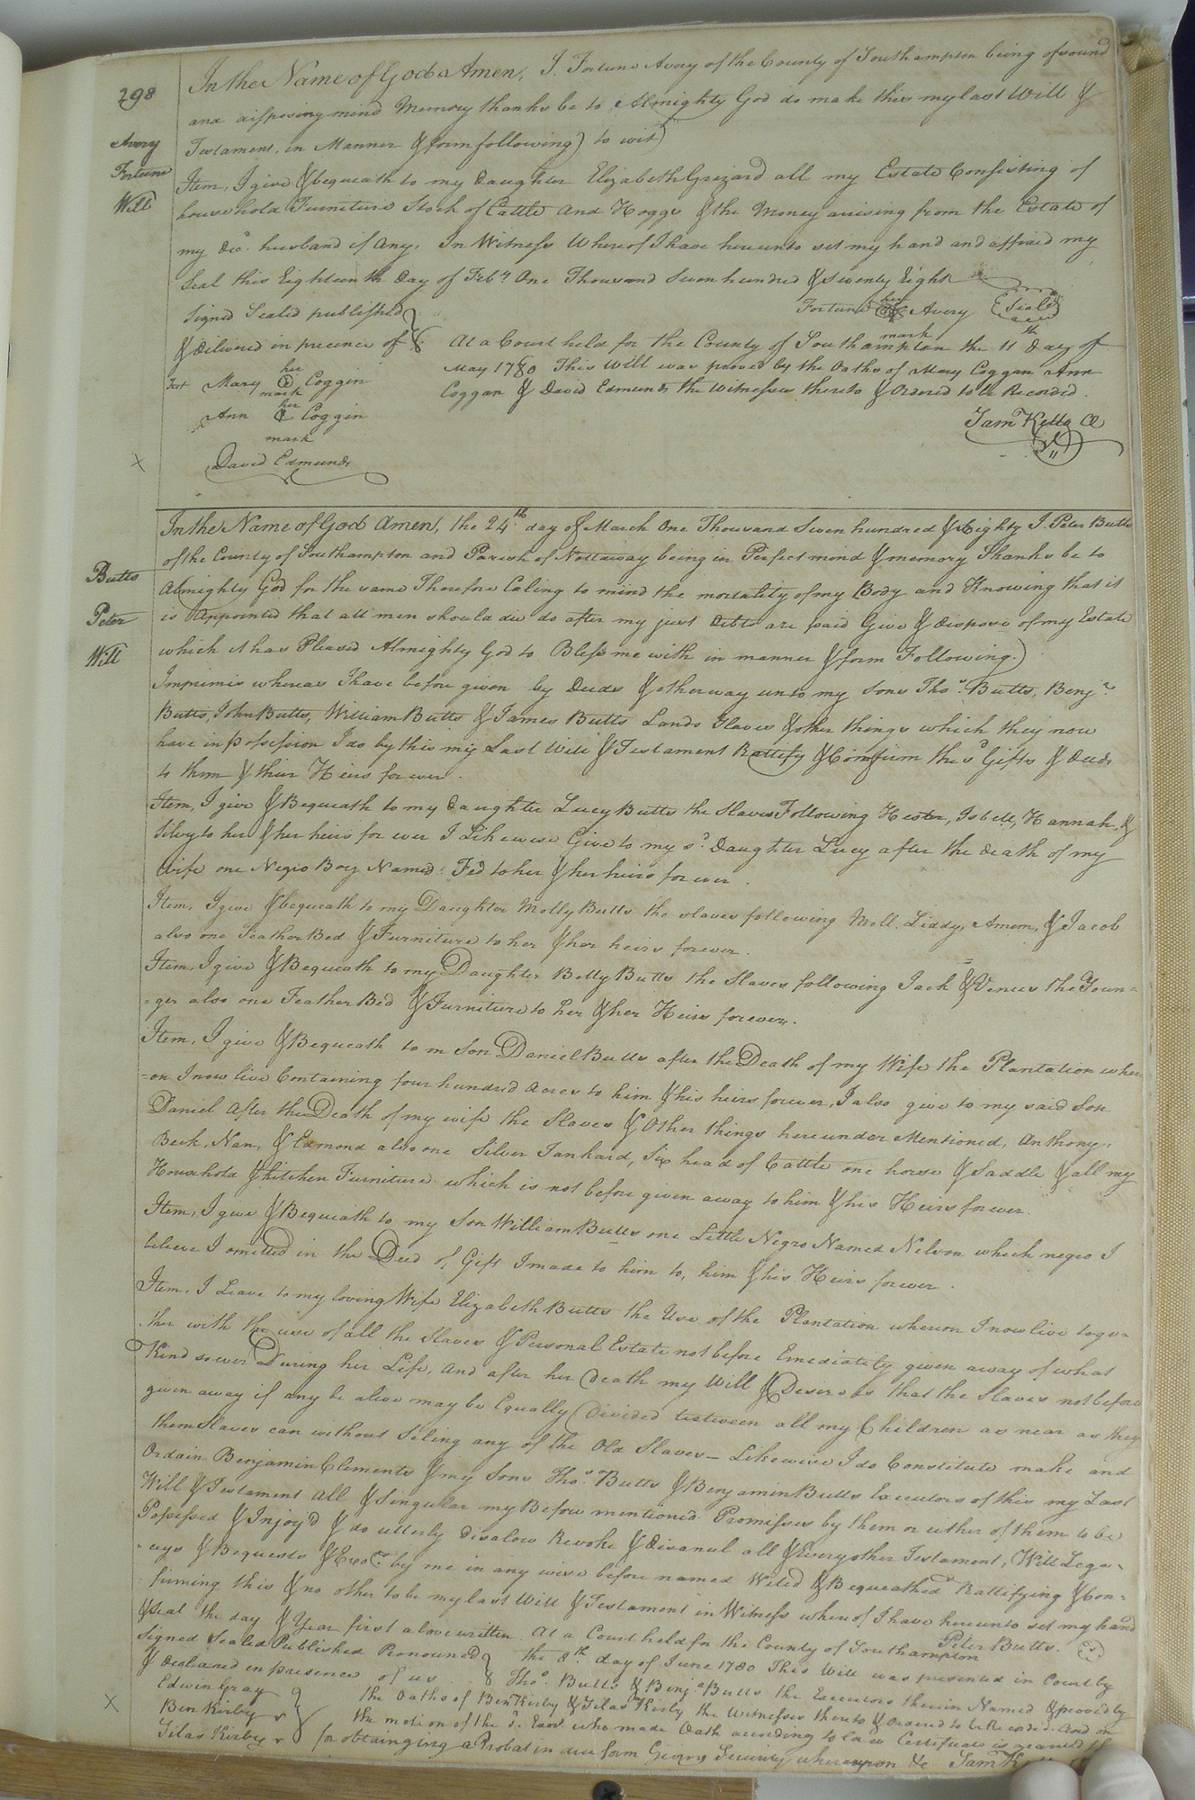 298
Avery
Fortune
Will
In the Name of God Amen, I. Fortune Avery of the County of Southampton being of sound
and disposing mind Memory thanks be to Almighty God do make this my last Will &
Testament, in Manner & form following) to wit)
Item, I give & bequeath to my Daughter Elizabeth Grizard all my Estate Consisting of
household Furniture Stock of Cattle and Hoggs & the Money arising from the Estate of
my Dec. husband if Any. In Witness Whereof I have hereunto set my hand and affixed my
Seal this Eighteenth Day of Febr. One Thousand Seven hundred & seventy Eight
Signed Sealed published
Fortune her mark Avery Seal
& delivered in precence of
At a Court held for the County of Southampton the 11th Day of
May 1780 This Will was proved by the Oaths of Mary Coggan Ann
Coggan & David Edmunds the Witnesses thereto & Ordered to be Recorded.
Test Mary her mark Coggin
Ann her mark Coggin
Sam Kello Cl
David Edmunds
Butts
Peter
Will
In the Name of God Amen, the 24th day of March One Thousand Seven hundred & Eighty I. Peter Butts
of the County of Southampton and Parish of Nottaway being in Perfect mind & memory Thanks be to
Almighty God for the same Therefore Caling to mind the mortality of my Body and Knowing that it
is Appointed that all men should die do after my just Debts are paid Give & dispose of my Estate
which it has Pleased Almighty God to Bless me with in manner & form Following.)
Imprimis whereas I have before given by Deeds & otherway unto my Sons Thos. Butts, Benjn.
Butts, John Butts, William Butts & James Butts Lands Slaves & other things which they now
have in possession I do by this my Last Will & Testament Rattify & Confirm the sd Gifts & Deeds
to them & their Heirs forever.
Item, I give & Bequeath to my Daughter Lucy Butts the Slaves Following Hester, Isbell, Hannah, &
Silvy to her & her heirs for ever I Likewise Give to my sd. Daughter Lucy after the death of my
Wife one Negro Boy Named Fed to her & her heirs for ever.
Item, I give & bequeath to my Daughter Molly Butts the slaves following Moll, Liddy, Amom, & Jacob
also one Feather Bed & Furniture to her & her heirs forever.
Item, I give & Bequeath to my Daughter Betty Butts the Slaves following Jack & Venus the Youn=
=ger also one Feather Bed & Furniture to her & her Heirs forever.
Item, I give & Bequeath to m Son Daniel Butts after the Death of my Wife the Plantation wher
=on I now live Containing four hundred acres to him & his heirs forever, I also give to my said Son
Daniel After the Death of my wife the Slaves & Other things hereunder Mentioned, Anthony,
Beck, Nan, & Edmond also one Silver Tankard, Six head of Cattle one horse & Saddle & all my
Household & kitchen Furniture which is not before given away to him & his Heirs forever.
Item, I give & Bequeath to my Son William Butts one Little Negro Named Nelson which negro I
believe I omitted in the Deed of Gift I made to him to, him & his Heirs forever.
Item, I Leave to my loving Wife Elizabeth Butts the Use of the Plantation whereon I now live toge=
ther with the use of all the Slaves & Personal Estate not before Emediately given away of what
Kind soever During her Life, and after her Death my Will & Desere is that the Slaves not before
given away if any be alive may be Equally Divided between all my Children as near as they
them Slaves can without Seling any of the Old Slaves - Likewise I do Constitute make and
Ordain Benjamin Clements & my Sons Thos. Butts & Benjamen Butts Executors of this my Last
Will & Testament All & Singular my Before mentioned Promises by them or uther of them to be
Possessed & Injoy'd & do utterly disalow Revoke & disanul all & Every other Testament, Will Lega=
=cys & Bequests & by me in any wise before named Wiled & Bequeathed Rattifying & Con=
firming this & no other to be my last Will & Testament in Witness whereof I have hereunto set my hand
& Seal the day & Year first above written.
Peter Butts.
Signed Sealed Published Pronounced
& declared in presence of us
At a Court held for the County of Southampton
the 8th. day of June 1780 This Will was presented in Court by
Thos. Butts & Benjn. Butts the Executors therein Named & proved by
Edwin Gray
the Oaths of Ben Kirby & Silas Kirby the Witnesses thereto & Ordered to be Recorded. And on
Ben Kirby
the motion of the sd. who made Oath according to Law Certificate is granted
Silas Kirby
for obtaining a Probat in due form Giving Security whereupon &c Sam